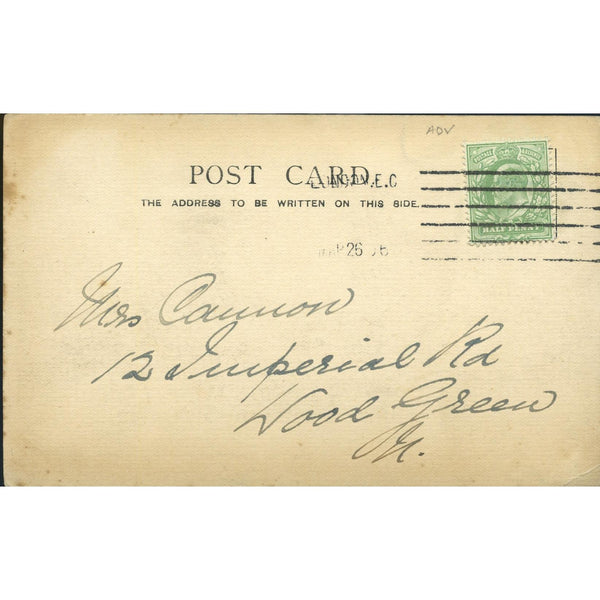 ADV
POST CARD.
LONDON.E.C
THE ADDRESS TO BE WRITTEN ON THIS SIDE.
26
HALFPENNY
Mrs Cannon
12 Imperial Rd
Wood Green
N.